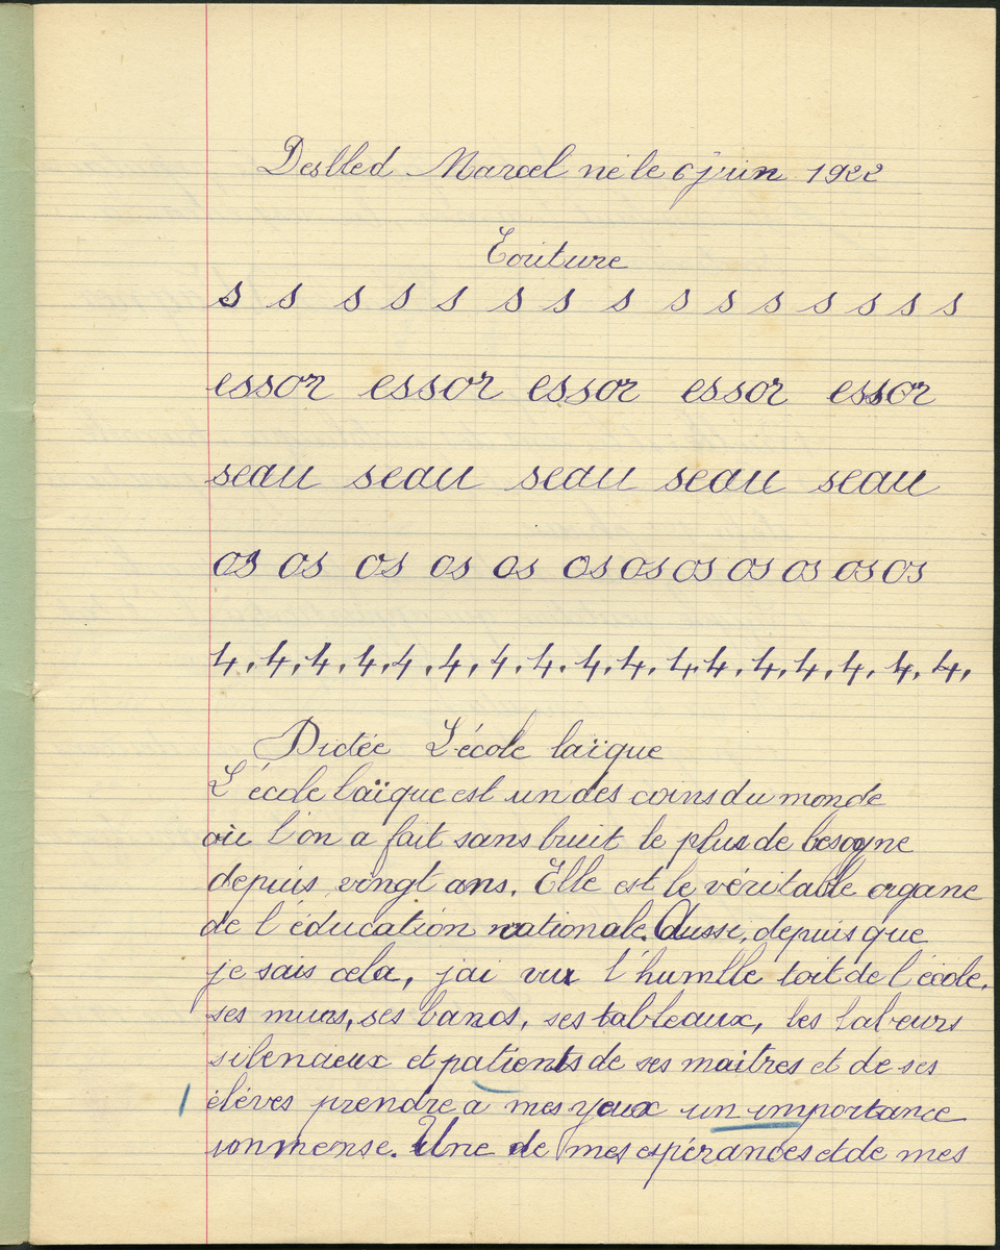 Deslled Marcel né le 6 juin 1922
Ecriture
s s s s s s s s s s s s s s s
essor essor essor essor essor
seau seau seau seau seau
os os os os os os os os os os os os
4, 4, 4, 4, 4, 4, 4, 4, 4, 4, 4, 4, 4, 4, 4, 4, 4,
Dictée L'école laïque
L'école laïque est un des coins du monde
où l'on a fait sans bruit le plus de besogne
depuis vingt ans. Elle est le véritable organe
de l'éducation nationale. Aussi, depuis que
je sais cela, j'ai vu l'humble toit de l'école,
ses murs, ses bancs, ses tableaux, les labeurs
silencieux et patients de ses maitres et de ses
1 élèves prendre a mes yeux un importance
immense. Une de mes espérances et de mes